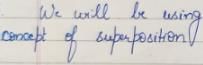 We will be using
concept of superposition